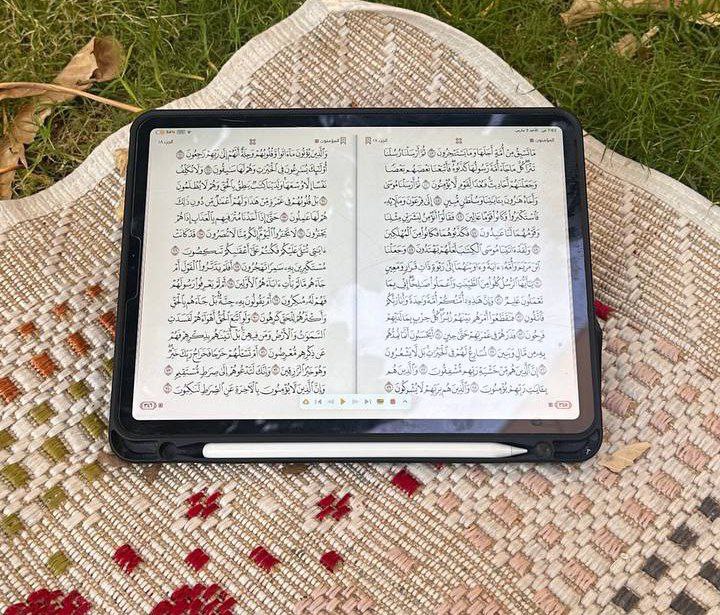 المؤمنون
الجزء ١٨
مَا تَسْبِقُ مِنْ أُمَّةٍ أَجَلَهَا وَمَا يَسْتَـْٔخِرُونَ ٤٣ ثُمَّ أَرْسَلْنَا رُسُلَنَا
تَتْرَا كُلَّ مَا جَآءَ أُمَّةً رَّسُولُهَا كَذَّبُوهُ فَأَتْبَعْنَا بَعْضَهُم بَعْضًا
وَجَعَلْنَٰهُمْ أَحَادِيثَ فَبُعْدًا لِّقَوْمٍ لَّا يُؤْمِنُونَ ٤٤ ثُمَّ أَرْسَلْنَا مُوسَىٰ
وَأَخَاهُ هَٰرُونَ بِـَٔايَٰتِنَا وَسُلْطَٰنٍ مُّبِينٍ ٤٥ إِلَىٰ فِرْعَوْنَ وَمَلَإِي۟هِ
فَٱسْتَكْبَرُوا۟ وَكَانُوا۟ قَوْمًا عَالِينَ ٤٦ فَقَالُوٓا۟ أَنُؤْمِنُ لِبَشَرَيْنِ مِثْلِنَا
وَقَوْمُهُمَا لَنَا عَٰبِدُونَ ٤٧ فَكَذَّبُوهُمَا فَكَانُوا۟ مِنَ ٱلْمُهْلَكِينَ
٤٨ وَلَقَدْ ءَاتَيْنَا مُوسَى ٱلْكِتَٰبَ لَعَلَّهُمْ يَهْتَدُونَ ٤٩ وَجَعَلْنَا
ٱبْنَ مَرْيَمَ وَأُمَّهُۥٓ ءَايَةً وَءَاوَيْنَٰهُمَآ إِلَىٰ رَبْوَةٍ ذَاتِ قَرَارٍ وَمَعِينٍ
٥٠ يَٰٓأَيُّهَا ٱلرُّسُلُ كُلُوا۟ مِنَ ٱلطَّيِّبَٰتِ وَٱعْمَلُوا۟ صَٰلِحًا إِنِّي بِمَا
تَعْمَلُونَ عَلِيمٌ ٥١ وَإِنَّ هَٰذِهِۦٓ أُمَّتُكُمْ أُمَّةً وَٰحِدَةً وَأَنَا۠ رَبُّكُمْ
فَٱتَّقُونِ ٥٢ فَتَقَطَّعُوٓا۟ أَمْرَهُم بَيْنَهُمْ زُبُرًا كُلُّ حِزْبٍۭ بِمَا لَدَيْهِمْ
فَرِحُونَ ٥٣ فَذَرْهُمْ فِي غَمْرَتِهِمْ حَتَّىٰ حِينٍ ٥٤ أَيَحْسَبُونَ أَنَّمَا نُمِدُّهُم
بِهِۦ مِن مَّالٍ وَبَنِينَ ٥٥ نُسَارِعُ لَهُمْ فِي ٱلْخَيْرَٰتِ بَل لَّا يَشْعُرُونَ
٥٦ إِنَّ ٱلَّذِينَ هُم مِّنْ خَشْيَةِ رَبِّهِم مُّشْفِقُونَ ٥٧ وَٱلَّذِينَ هُم
بِـَٔايَٰتِ رَبِّهِمْ يُؤْمِنُونَ ٥٨ وَٱلَّذِينَ هُم بِرَبِّهِمْ لَا يُشْرِكُونَ ٥٩
٣٤٥
المؤمنون
الجزء ١٨
وَٱلَّذِينَ يُؤْتُونَ مَآ ءَاتَوا۟ وَّقُلُوبُهُمْ وَجِلَةٌ أَنَّهُمْ إِلَىٰ رَبِّهِمْ رَٰجِعُونَ ٦٠
أُو۟لَٰٓئِكَ يُسَٰرِعُونَ فِي ٱلْخَيْرَٰتِ وَهُمْ لَهَا سَٰبِقُونَ ٦١ وَلَا نُكَلِّفُ
نَفْسًا إِلَّا وُسْعَهَا وَلَدَيْنَا كِتَٰبٌ يَنطِقُ بِٱلْحَقِّ وَهُمْ لَا يُظْلَمُونَ
٦٢ بَلْ قُلُوبُهُمْ فِي غَمْرَةٍ مِّنْ هَٰذَا وَلَهُمْ أَعْمَٰلٌ مِّن دُونِ ذَٰلِكَ
هُمْ لَهَا عَٰمِلُونَ ٦٣ حَتَّىٰٓ إِذَآ أَخَذْنَا مُتْرَفِيهِم بِٱلْعَذَابِ إِذَا هُمْ
يَجْـَٔرُونَ ٦٤ لَا تَجْـَٔرُوا۟ ٱلْيَوْمَ إِنَّكُم مِّنَّا لَا تُنصَرُونَ ٦٥ قَدْ كَانَتْ
ءَايَٰتِي تُتْلَىٰ عَلَيْكُمْ فَكُنتُمْ عَلَىٰٓ أَعْقَٰبِكُمْ تَنكِصُونَ ٦٦
مُسْتَكْبِرِينَ بِهِۦ سَٰمِرًا تَهْجُرُونَ ٦٧ أَفَلَمْ يَدَّبَّرُوا۟ ٱلْقَوْلَ أَمْ
جَآءَهُم مَّا لَمْ يَأْتِ ءَابَآءَهُمُ ٱلْأَوَّلِينَ ٦٨ أَمْ لَمْ يَعْرِفُوا۟ رَسُولَهُمْ
فَهُمْ لَهُۥ مُنكِرُونَ ٦٩ أَمْ يَقُولُونَ بِهِۦ جِنَّةٌۢ بَلْ جَآءَهُم بِٱلْحَقِّ
وَأَكْثَرُهُمْ لِلْحَقِّ كَٰرِهُونَ ٧٠ وَلَوِ ٱتَّبَعَ ٱلْحَقُّ أَهْوَآءَهُمْ لَفَسَدَتِ
ٱلسَّمَٰوَٰتُ وَٱلْأَرْضُ وَمَن فِيهِنَّ بَلْ أَتَيْنَٰهُم بِذِكْرِهِمْ فَهُمْ
عَن ذِكْرِهِم مُّعْرِضُونَ ٧١ أَمْ تَسْـَٔلُهُمْ خَرْجًا فَخَرَاجُ رَبِّكَ خَيْرٌ
وَهُوَ خَيْرُ ٱلرَّٰزِقِينَ ٧٢ وَإِنَّكَ لَتَدْعُوهُمْ إِلَىٰ صِرَٰطٍ مُّسْتَقِيمٍ
٧٣ وَإِنَّ ٱلَّذِينَ لَا يُؤْمِنُونَ بِٱلْءَاخِرَةِ عَنِ ٱلصِّرَٰطِ لَنَٰكِبُونَ ٧٤
٣٤٦